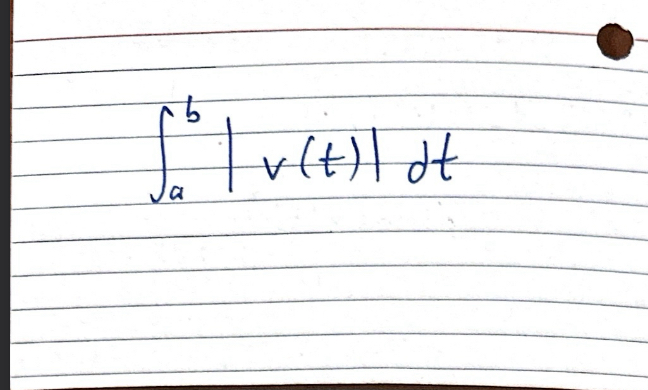 ∫_a^b |v(t)| dt